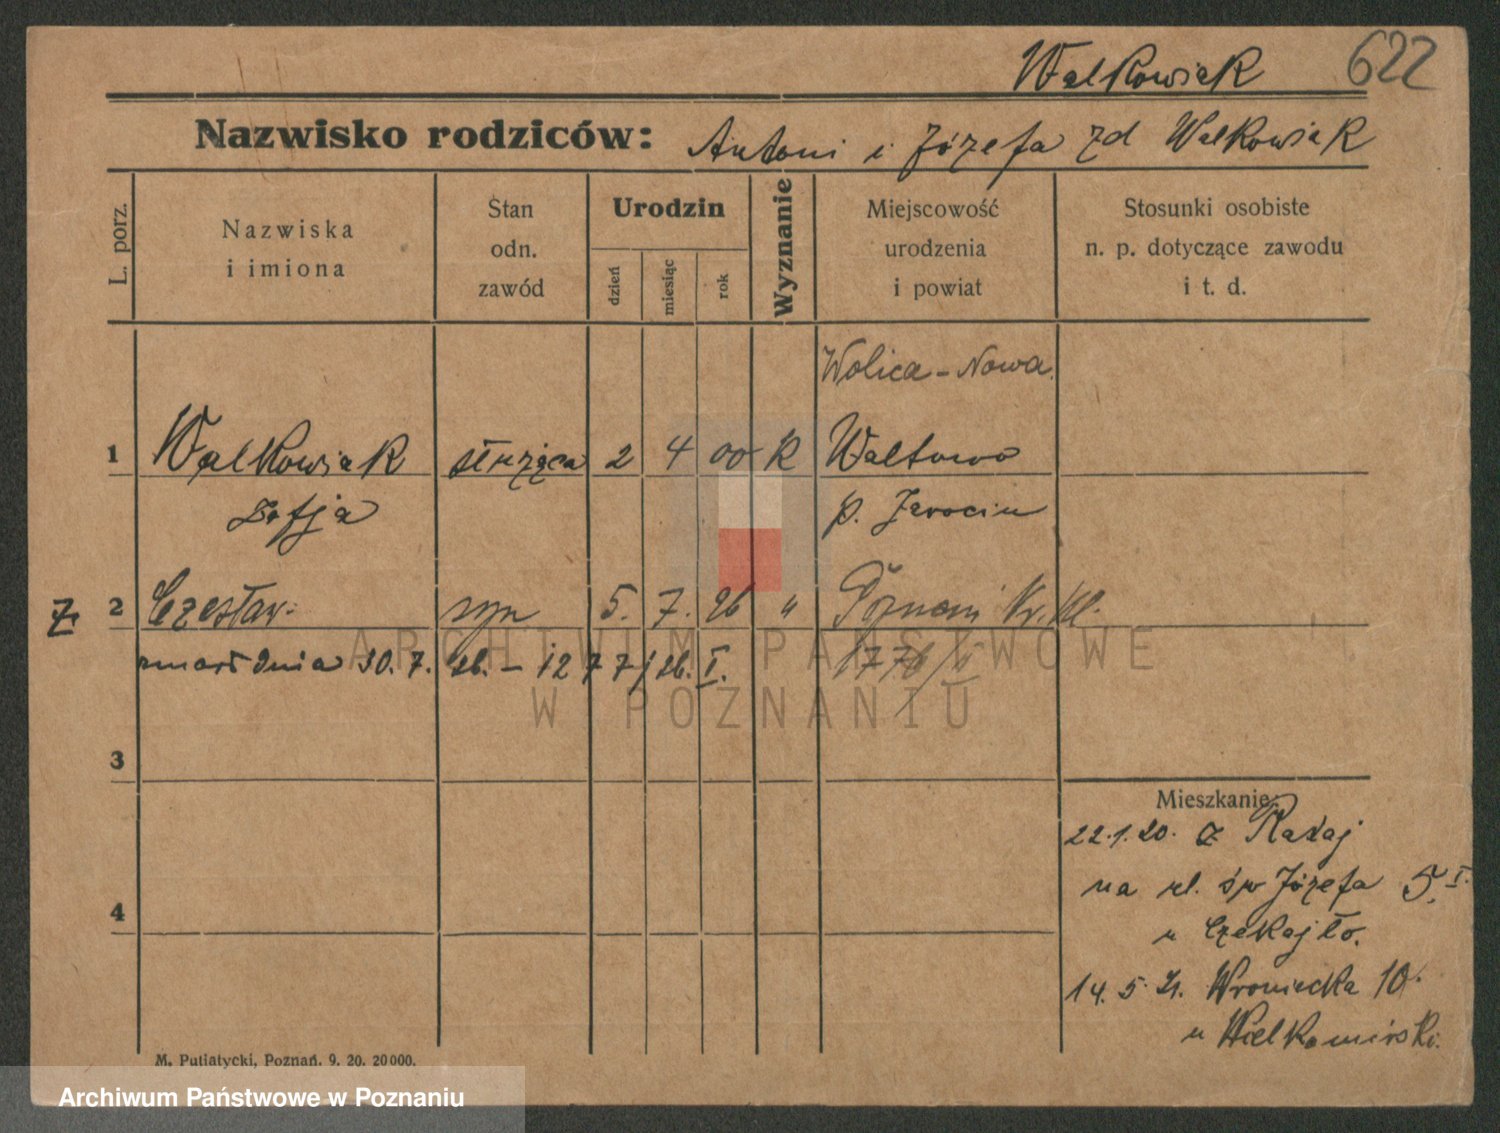 Walkowiak 622
Nazwisko rodziców: Antoni i Józefa zd Walkowiak
L. porz.
Nazwiska
i imiona
Stan
odn.
zawód
Urodzin
dzień
miesiąc
rok
Wyznanie
Miejscowość
urodzenia
i powiat
Stosunki osobiste
n. p. dotyczące zawodu
i t. d.
Wolica - Nowa
1 Walkowiak służąca 2 4 00 K
Zofja p. Jarocin
Z 2 Czesław. syn 5. 7. 26 " Poznań
zmarł dnia 30. 7. 26. - 1277/26. I.
3
4
Mieszkanie:
22.1.20. z
na ul. św Józefa 5. I.
u Czekajło.
14. 5. 21. Wroniecka 10.
u Wielkomirski.
M. Putiatycki, Poznań. 9. 20. 20 000.
ARCHIWUM PAŃSTWOWE
W POZNANIU
Archiwum Państwowe w Poznaniu